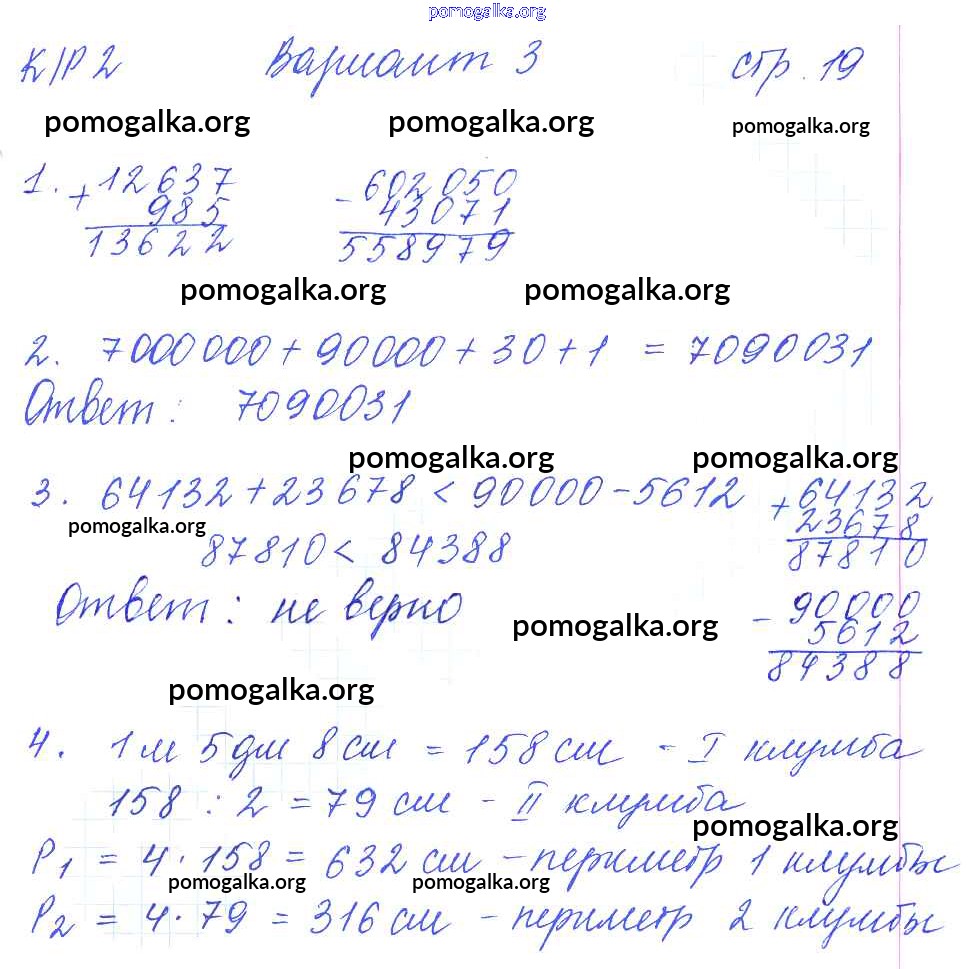 pomogalka.org
К/Р 2 Вариант 3 стр. 19
pomogalka.org pomogalka.org pomogalka.org
1. + 12637 - 602050
985 43071
13622 558979
pomogalka.org pomogalka.org
2. 7000000 + 90000 + 30 + 1 = 7090031
Ответ: 7090031
pomogalka.org pomogalka.org
3. 64132 + 23678 < 90000 - 5612 + 64132
pomogalka.org 23678
87810 < 84388 87810
Ответ: не верно - 90000
pomogalka.org 5612
84388
pomogalka.org
4. 1 м 5 дм 8 см = 158 см - I клумба
158 : 2 = 79 см - II клумба
pomogalka.org
P1 = 4 · 158 = 632 см - периметр 1 клумбы
pomogalka.org pomogalka.org
P2 = 4 · 79 = 316 см - периметр 2 клумбы